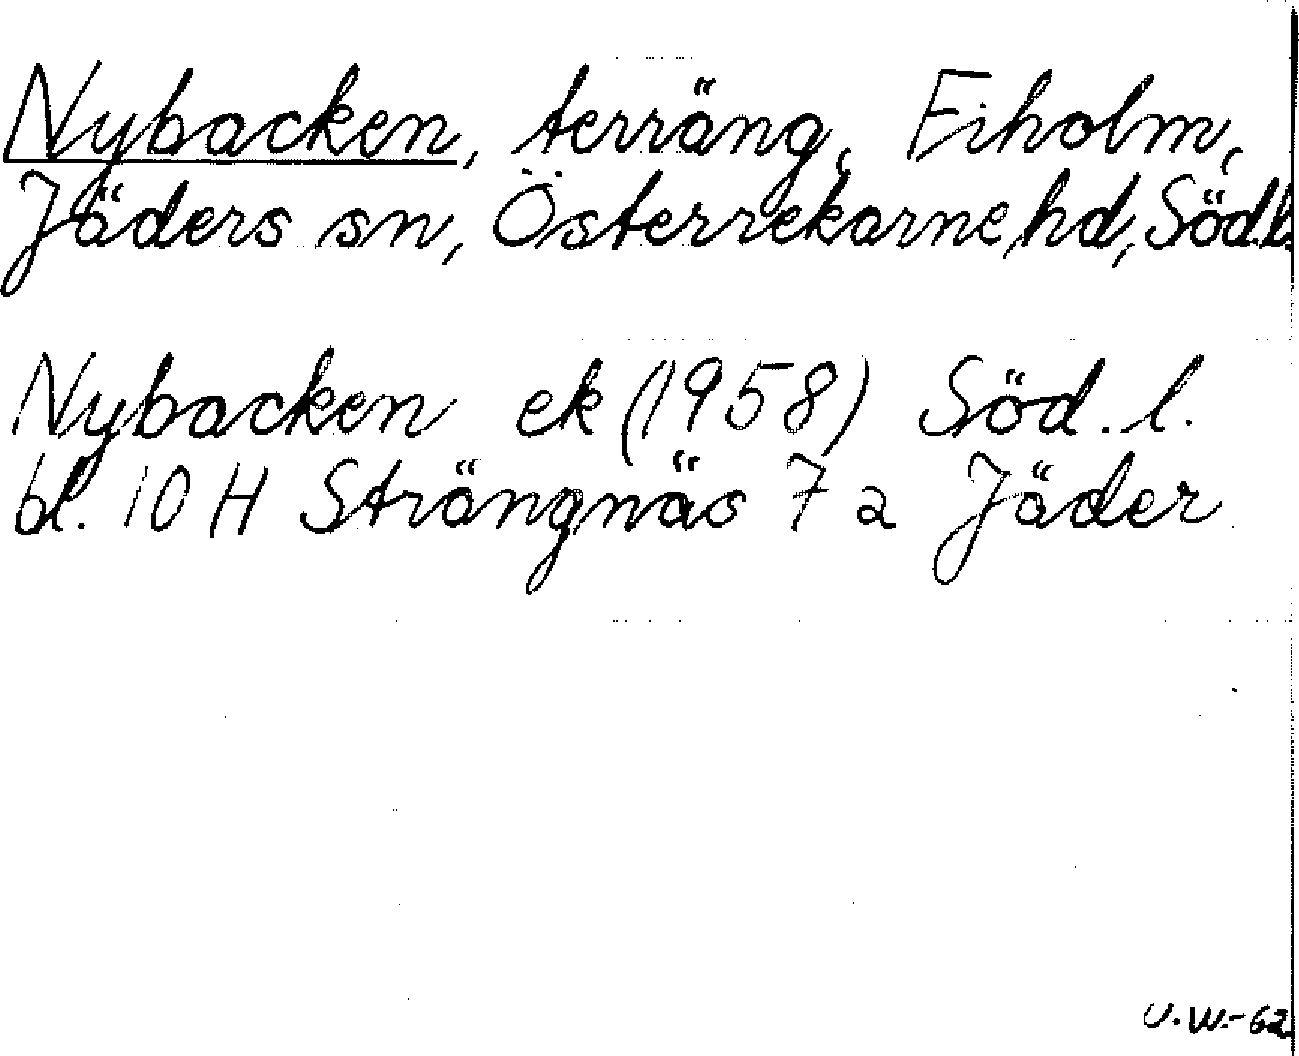 Nybacken, terräng, Fiholm,
Jäders sn, Österrekarne hd, Söd.l.
Nybacken ek (1958) Söd. l.
bl. 10 H Strängnäs 7 a Jäder
U.W.-62